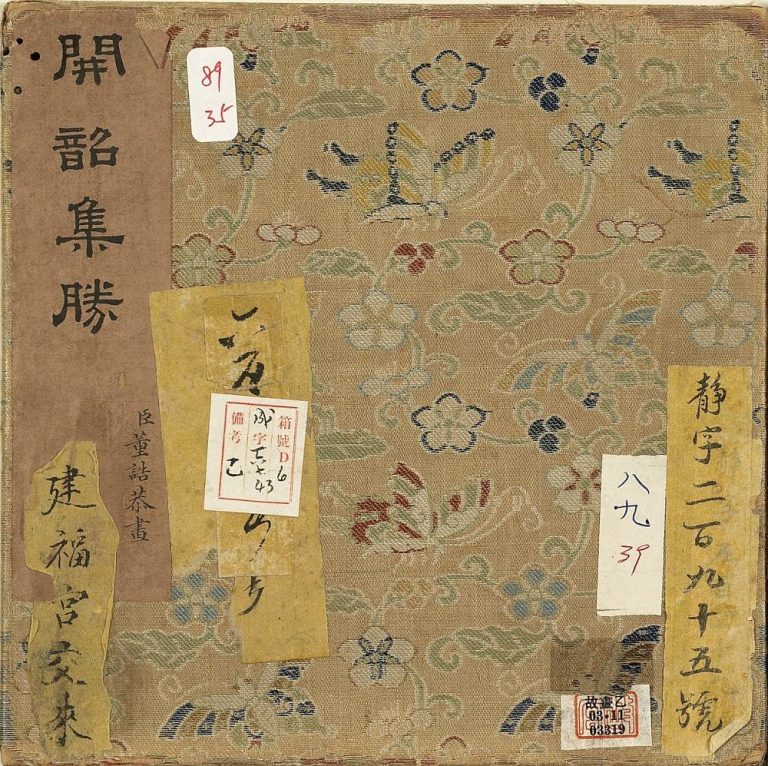 開韶集勝
臣董誥恭畫
建福宮交來
89
35
箱號D6
成字
43
備考
乙
八九
39
静字二百九十五號
故畫乙
03-11
03319